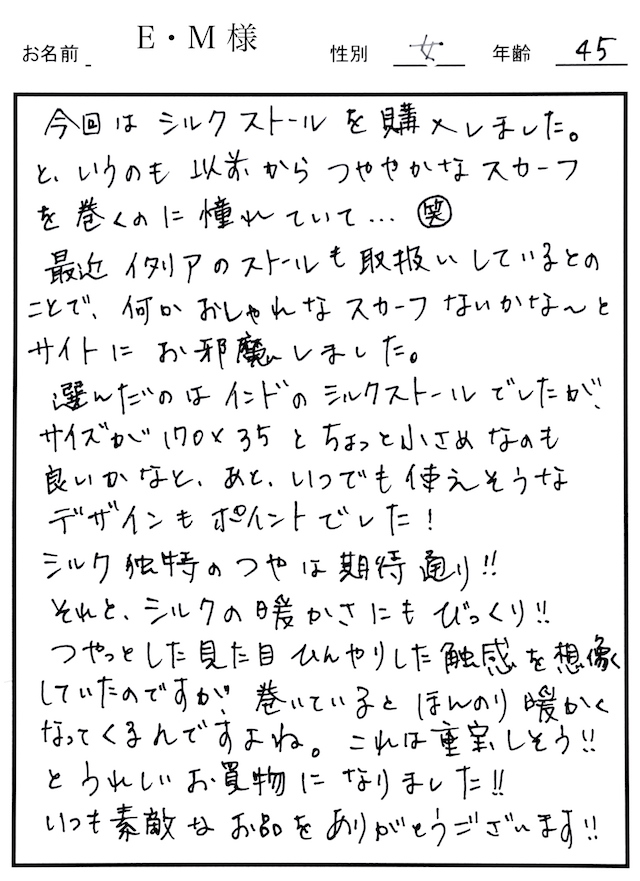 お名前 E・M 様 性別 女 年齢 45
今回は シルクストール を 購入しました。
と、いうのも 以前 から つややかな スカーフ
を 巻くのに 憧れていて… ㊗笑
最近 イタリアのストールも 取扱い しているとの
ことで、何か おしゃれな スカーフ ないかな〜と
サイトに お邪魔しました。
選んだのは インドの シルクストール でしたが、
サイズが 170×35 と ちょっと小さめ なのも
良いかなと、あと、いつでも 使えそうな
デザインも ポイントでした!
シルク 独特の つや は 期待 通り!!
それと、シルクの 暖かさにも びっくり!!
つやっとした 見た目 ひんやりした 触感 を 想像
していたのですが、巻いていると ほんのり 暖かく
なってくるんですよね。これは 重宝しそう!!
と うれしい お買物 に なりました!!
いつも 素敵な お品を ありがとうございます!!